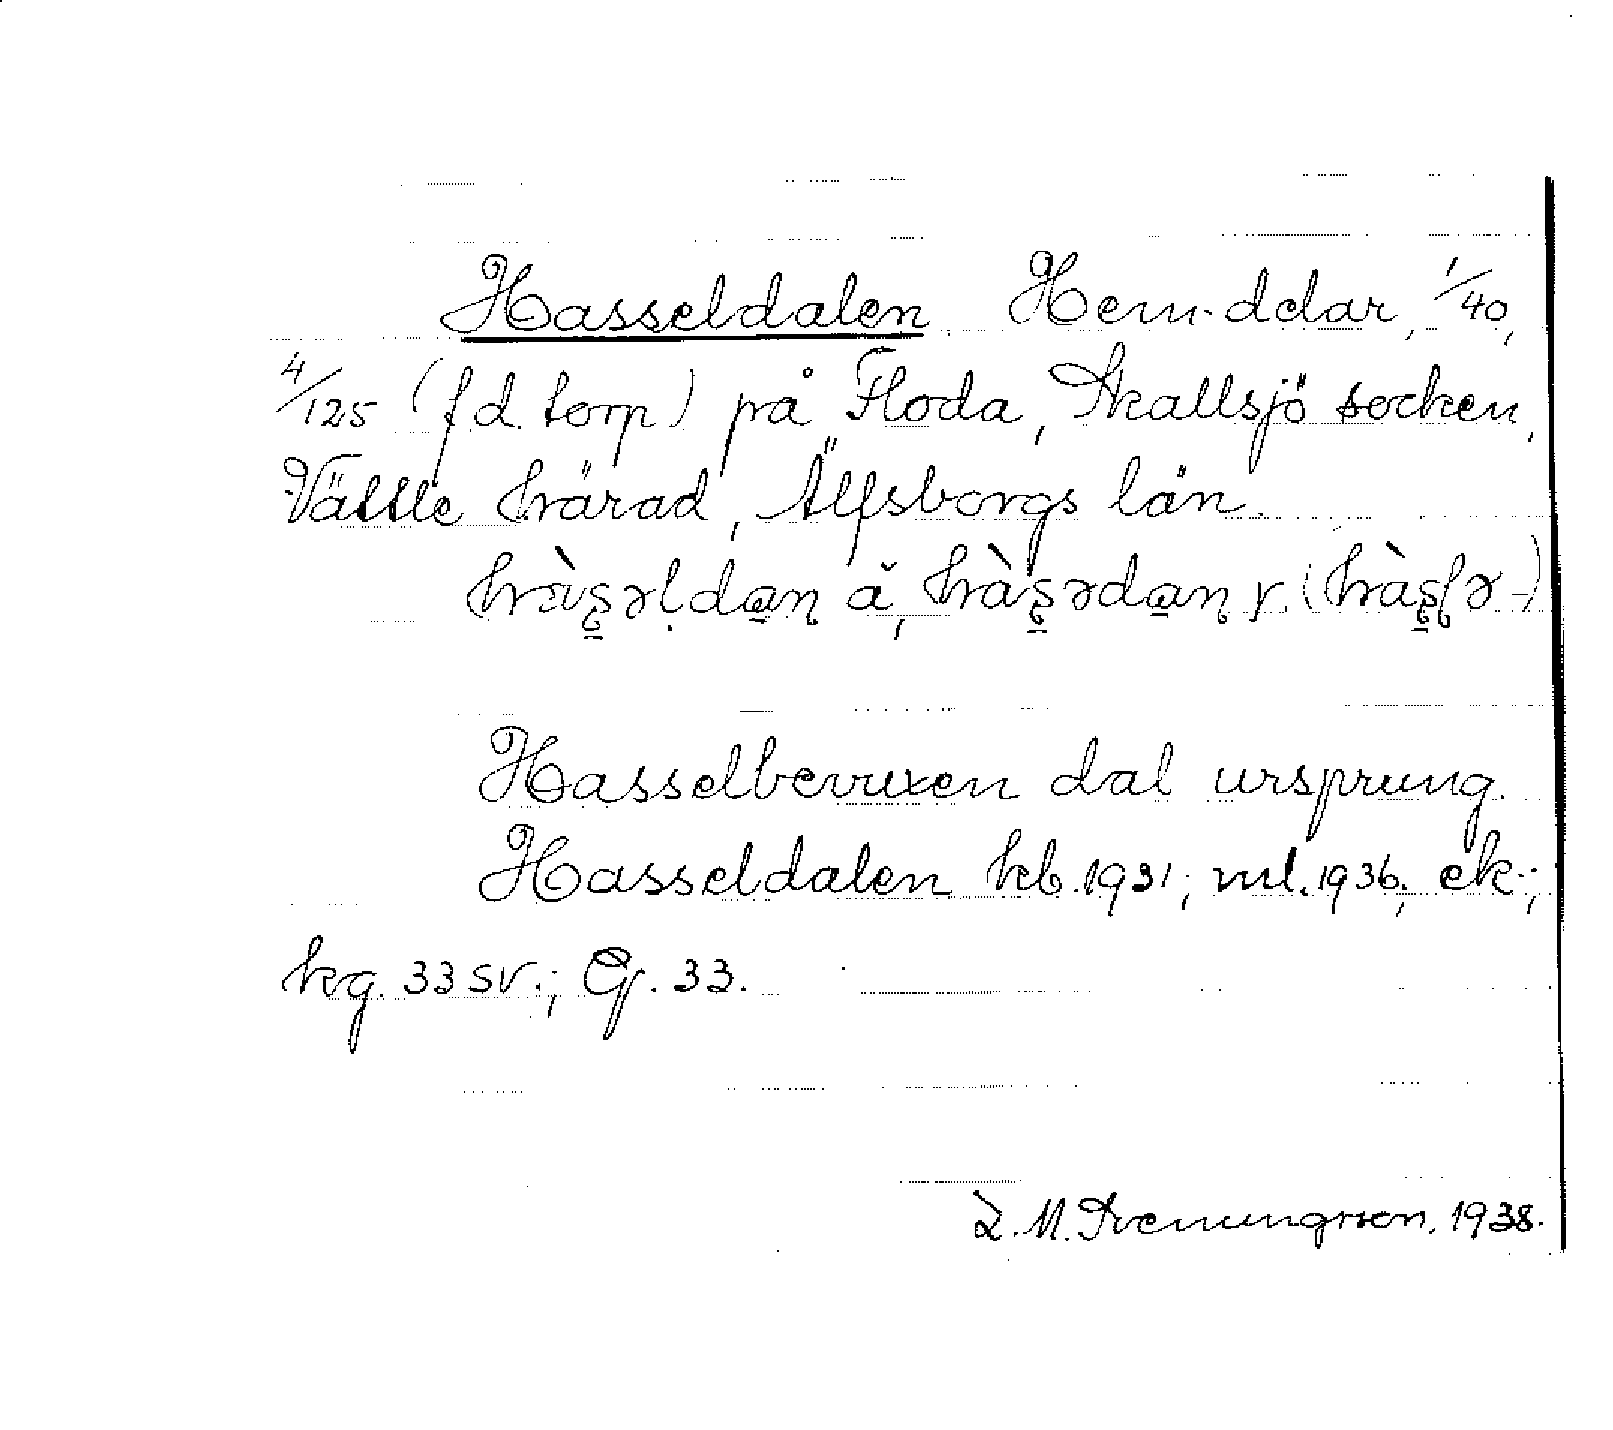 Hasseldalen Hem.delar, 1/40,
4/125 (f d. torp) på Floda, Skallsjö socken,
Vättle härad, Älfsborgs län.
hàs̠əl̥dan̥ ă, hàs̠ədan̥ r (hàs̠lə-)
Hasselbevuxen dal ursprung.
Hasseldalen kb. 1931; ml. 1936; ek.;
kg. 33 sv.; Gf. 33.
1938.